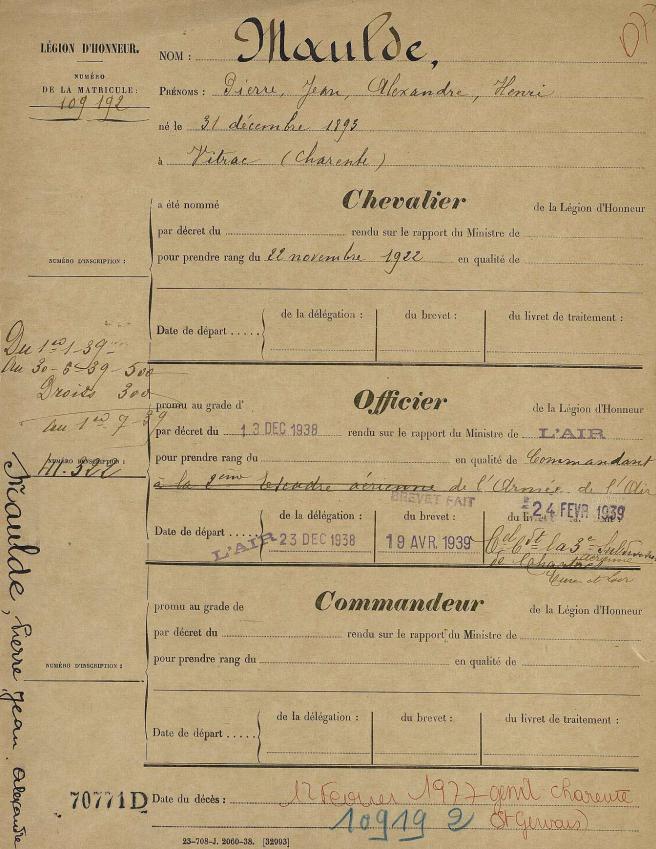 LÉGION D'HONNEUR.
NUMÉRO
DE LA MATRICULE:
109 192
NOM : Maulde,
PRÉNOMS : Pierre, Jean, Alexandre, Henri
né le 31 décembre 1893
à Vitrac (Charente)
a été nommé Chevalier de la Légion d'Honneur
par décret du rendu sur le rapport du Ministre de
pour prendre rang du 22 novembre 1922 en qualité de
NUMÉRO D'INSCRIPTION :
Date de départ ..... de la délégation : du brevet : du livret de traitement :
Du 1er 1-39-
au 30-6-39-500
Droits 300
au 1er 7-39
promu au grade d' Officier de la Légion d'Honneur
par décret du 13 DEC 1938 rendu sur le rapport du Ministre de L'AIR
pour prendre rang du en qualité de Commandant
NUMÉRO D'INSCRIPTION :
à la 2ème Escadre aérienne de l'Armée de l'Air
BREVET FAIT
24 FEVR 1939
Date de départ ..... de la délégation : du brevet : du
L'AIR 23 DEC 1938 19 AVR 1939
la 3e
de Chartres
Eure et Loir
promu au grade de Commandeur de la Légion d'Honneur
par décret du rendu sur le rapport du Ministre de
pour prendre rang du en qualité de
NUMÉRO D'INSCRIPTION :
Date de départ ..... de la délégation : du brevet : du livret de traitement :
Maulde, Pierre Jean Alexandre
70771D
Date du décès : 12 Février 1977 charente
109192 St Gervais
23-708-J. 2060-38. [32993]